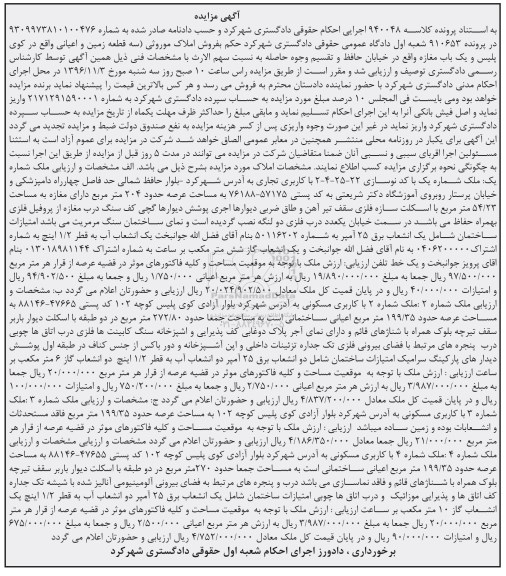 آگهی مزایده
به استناد پرونده کلاسه ۹۴۰۰۴۸ اجرایی احکام حقوقی دادگستری شهرکرد و حسب دادنامه صادر شده به شماره ۹۳۰۹۹۷۳۸۱۰۱۰۰۴۷۶
در پرونده ۹۱۰۶۵۳ شعبه اول دادگاه عمومی حقوقی دادگستری شهرکرد حکم بفروش املاک موروثی (سه قطعه زمین و اعیانی واقع در کوی
پلیس و یک باب مغازه واقع در خیابان حافظ و تقسیم وجوه حاصله به نسبت سهم الارث با مشخصات فنی ذیل همین آگهی توسط کارشناس
رسمی دادگستری توصیف و ارزیابی شد و مقرر است از طریق مزایده راس ساعت ۱۰ صبح روز سه شنبه مورخ ۱۳۹۶/۱۱/۳ در محل اجرای
احکام مدنی دادگستری شهرکرد با حضور نماینده دادستان محترم به فروش می رسد و هر کس بالاترین قیمت را پیشنهاد نماید برنده مزایده
خواهد بود ومی بایست فی المجلس ۱۰ درصد مبلغ مورد مزایده به حساب سپرده دادگستری شهرکرد به شماره ۲۱۷۱۲۹۱۵۹۰۰۰۱ واریز
نماید و اصل فیش بانکی آنرا به این اجرای احکام تسلیم نماید و مابقی مبلغ را حداکثر ظرف مهلت یکماه از تاریخ مزایده به حساب سپرده
دادگستری شهرکرد واریز نماید در غیر این صورت وجوه واریزی پس از کسر هزینه مزایده به نفع صندوق دولت ضبط و مزایده تجدید می گردد
این آگهی برای یکبار در روزنامه محلی منتشر همچنین در معابر عمومی الصاق خواهد شد شرکت در مزایده برای عموم آزاد است به استثنا
مسئولین اجرا اقربای سببی و نسبی آنان ضمنا متقاضیان شرکت در مزایده می توانند در مدت ۵ روز قبل از مزایده از طریق این اجرا نسبت
به چگونگی نحوه برگزاری مزایده کسب اطلاع نمایند. مشخصات املاک مورد مزایده بشرح ذیل می باشد. الف مشخصات و ارزیابی ملک شماره
یک: ملک شماره یک با کد نوسازی ۲۲-۲۵-۴-۲ با کاربری تجاری به آدرس شهرکرد -بلوار حافظ شمالی حد فاصل چهارراه دامپزشکی و
خیابان پرستار روبروی آموزشگاه دکتر شریعتی به کد پستی ۵۷۱۷۵-۷۶۱۸۸ به مساحت عرصه حدود ۲۰۴ متر مربع دارای مغازه به مساحت
۵۴/۲۳ متر مربع با اسکلت سازه فلزی سقف تیر آهن و طاق ضربی دیوارها آجری پوشش دیوارها گچی کف سنگ درب مغازه از پروفیل فلزی
بهمراه حفاظ می باشد در سمت خیابان یکعدد درب فلزی دو لنگه نصب گردیده است و نمای ساختمان سنگ مرمریت می باشد امتیازات
ساختمان شامل یک انشعاب برق ۲۵ آمپر به شماره ۵۰۱۱۶۲۰۲ بنام آقای فضل الله جوانبخت یک انشعاب آب به قطر ۱/۲ اینچ به شماره
اشتراک ۰۴۰۶۲۰۰۰۰۰ به نام آقای فضل الله جوانبخت و یک انشعاب گاز شش متر مکعب بر ساعت به شماره اشتراک ۰۱۳۰۱۸۹۸۱۱۴۴ بنام
آقای پرویز جوانبخت و یک خط تلفن ارزیابی: ارزش ملک با توجه به موقعیت مساحت و کلیه فاکتورهای موثر در قضیه عرصه از قرار هر متر مربع
۹۷/۵۰۰/۰۰۰ ریال جمعا به مبلغ ۱۹/۸۹۰/۰۰۰/۰۰۰ ریال به ارزش هر متر مربع اعیانی ۱/۷۵۰/۰۰۰ ریال و جمعا به مبلغ ۹۴/۹۰۲/۵۰۰ ریال
و امتیازات ۴۰/۰۰۰/۰۰۰ ریال و در پایان قیمت کل ملک معادل ۲۰/۰۲۴/۹۰۲/۵۰۰ ریال ارزیابی و حضورتان اعلام می گردد ب: مشخصات و
ارزیابی ملک شماره ۲ :ملک شماره ۲ با کاربری مسکونی به آدرس شهرکرد بلوار آزادی کوی پلیس کوچه ۱۰۲ کد پستی ۴۷۶۶۵-۸۸۱۴۶ به
مساحت عرصه حدود ۱۹۹/۳۵ متر مربع اعیانی ساختمانی است به مساحت جمعا حدود ۲۷۲/۸۰ متر مربع در دو طبقه با اسکلت دیوار باربر
سقف تیرچه بلوک همراه با شناژهای قائم و دارای نمای آجر پلاک دوغابی کف پذیرایی و آشپزخانه سنگ کابینت ها فلزی درب اتاق ها چوبی
درب پنجره های مرتبط با فضای بیرونی فلزی تک جداره تزئینات داخلی و این آشپزخانه و دور باکس از جنس کناف در طبقه اول پوشش
دیدار های پارکینگ سرامیک امتیازات ساختمان شامل دو انشعاب برق ۲۵ آمپر دو انشعاب آب به قطر ۱/۲ اینچ دو انشعاب گاز ۶ متر مکعب بر
ساعت ارزیابی : ارزش ملک با توجه به موقعیت مساحت و کلیه فاکتورهای موثر در قضیه عرصه از قرار هر متر مربع ۲۰/۰۰۰/۰۰۰ ریال جمعا
به مبلغ ۳/۹۸۷/۰۰۰/۰۰۰ ریال به ارزش هر متر مربع اعیانی ۲/۷۵۰/۰۰۰ ریال و جمعا به مبلغ ۷۵۰/۲۰۰/۰۰۰ ریال و امتیازات ۱۰۰/۰۰۰/۰۰۰
ریال و در پایان قیمت کل ملک معادل ۴/۸۳۷/۲۰۰/۰۰۰ ریال ارزیابی و حضورتان اعلام می گردد ج: مشخصات و ارزیابی ملک شماره ۳ :ملک
شماره ۳ با کاربری مسکونی به آدرس شهرکرد بلوار آزادی کوی پلیس کوچه ۱۰۲ به مساحت عرصه حدود ۱۹۹/۳۵ متر مربع فاقد مستحدثات
و انشعابات بوده و زمین ساده میباشد ارزیابی : ارزش ملک با توجه به موقعیت مساحت و کلیه فاکتورهای موثر در قضیه عرصه از قرار هر
متر مربع ۲۱/۰۰۰/۰۰۰ ریال جمعا معادل ۴/۱۸۶/۳۵۰/۰۰۰ ریال ارزیابی و حضورتان اعلام می گردد مشخصات و ارزیابی مشخصات و ارزیابی
ملک شماره ۴ :ملک شماره ۴ با کاربری مسکونی به آدرس شهرکرد بلوار آزادی کوی پلیس کوچه ۱۰۲ کد پستی ۴۷۶۵۵-۸۸۱۴۶ به مساحت
عرصه حدود ۱۹۹/۳۵ متر مربع اعیانی ساختمانی است به مساحت جمعا حدود ۲۷۰متر مربع در دو طبقه با اسکلت دیوار باربر سقف تیرچه
بلوک همراه با شناژهای قائم و فاقد نماسازی می باشد درب و پنجره های مرتبط به فضای بیرونی آلومینیومی آنالیز شده با شیشه تک جداره
کف اتاق ها و پذیرایی موزائیک و درب اتاق ها چوبی امتیازات ساختمان شامل یک انشعاب برق ۲۵ آمپر دو انشعاب آب به قطر ۱/۲ اینچ یک
انشعاب گاز ۱۰ متر مکعب بر ساعت ارزیابی : ارزش ملک با توجه به موقعیت مساحت و کلیه فاکتورهای موثر در قضیه عرصه از قرار هر متر
مربع ۲۰/۰۰۰/۰۰۰ ریال جمعا به مبلغ ۳/۹۸۷/۰۰۰/۰۰۰ ریال به ارزش هر متر مربع اعیانی ۲/۵۰۰/۰۰۰ ریال و جمعا به مبلغ ۶۷۵/۰۰۰/۰۰۰
ریال و امتیازات ۹۰/۰۰۰/۰۰۰ ریال و در پایان قیمت کل ملک معادل ۴/۷۵۲/۰۰۰/۰۰۰ ریال ارزیابی و حضورتان اعلام می گردد
برخورداری ، دادورز اجرای احکام شعبه اول حقوقی دادگستری شهرکرد